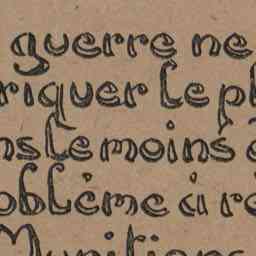 guerre ne
riquer le pl
ns le moins d
oblème à ré
Munitions